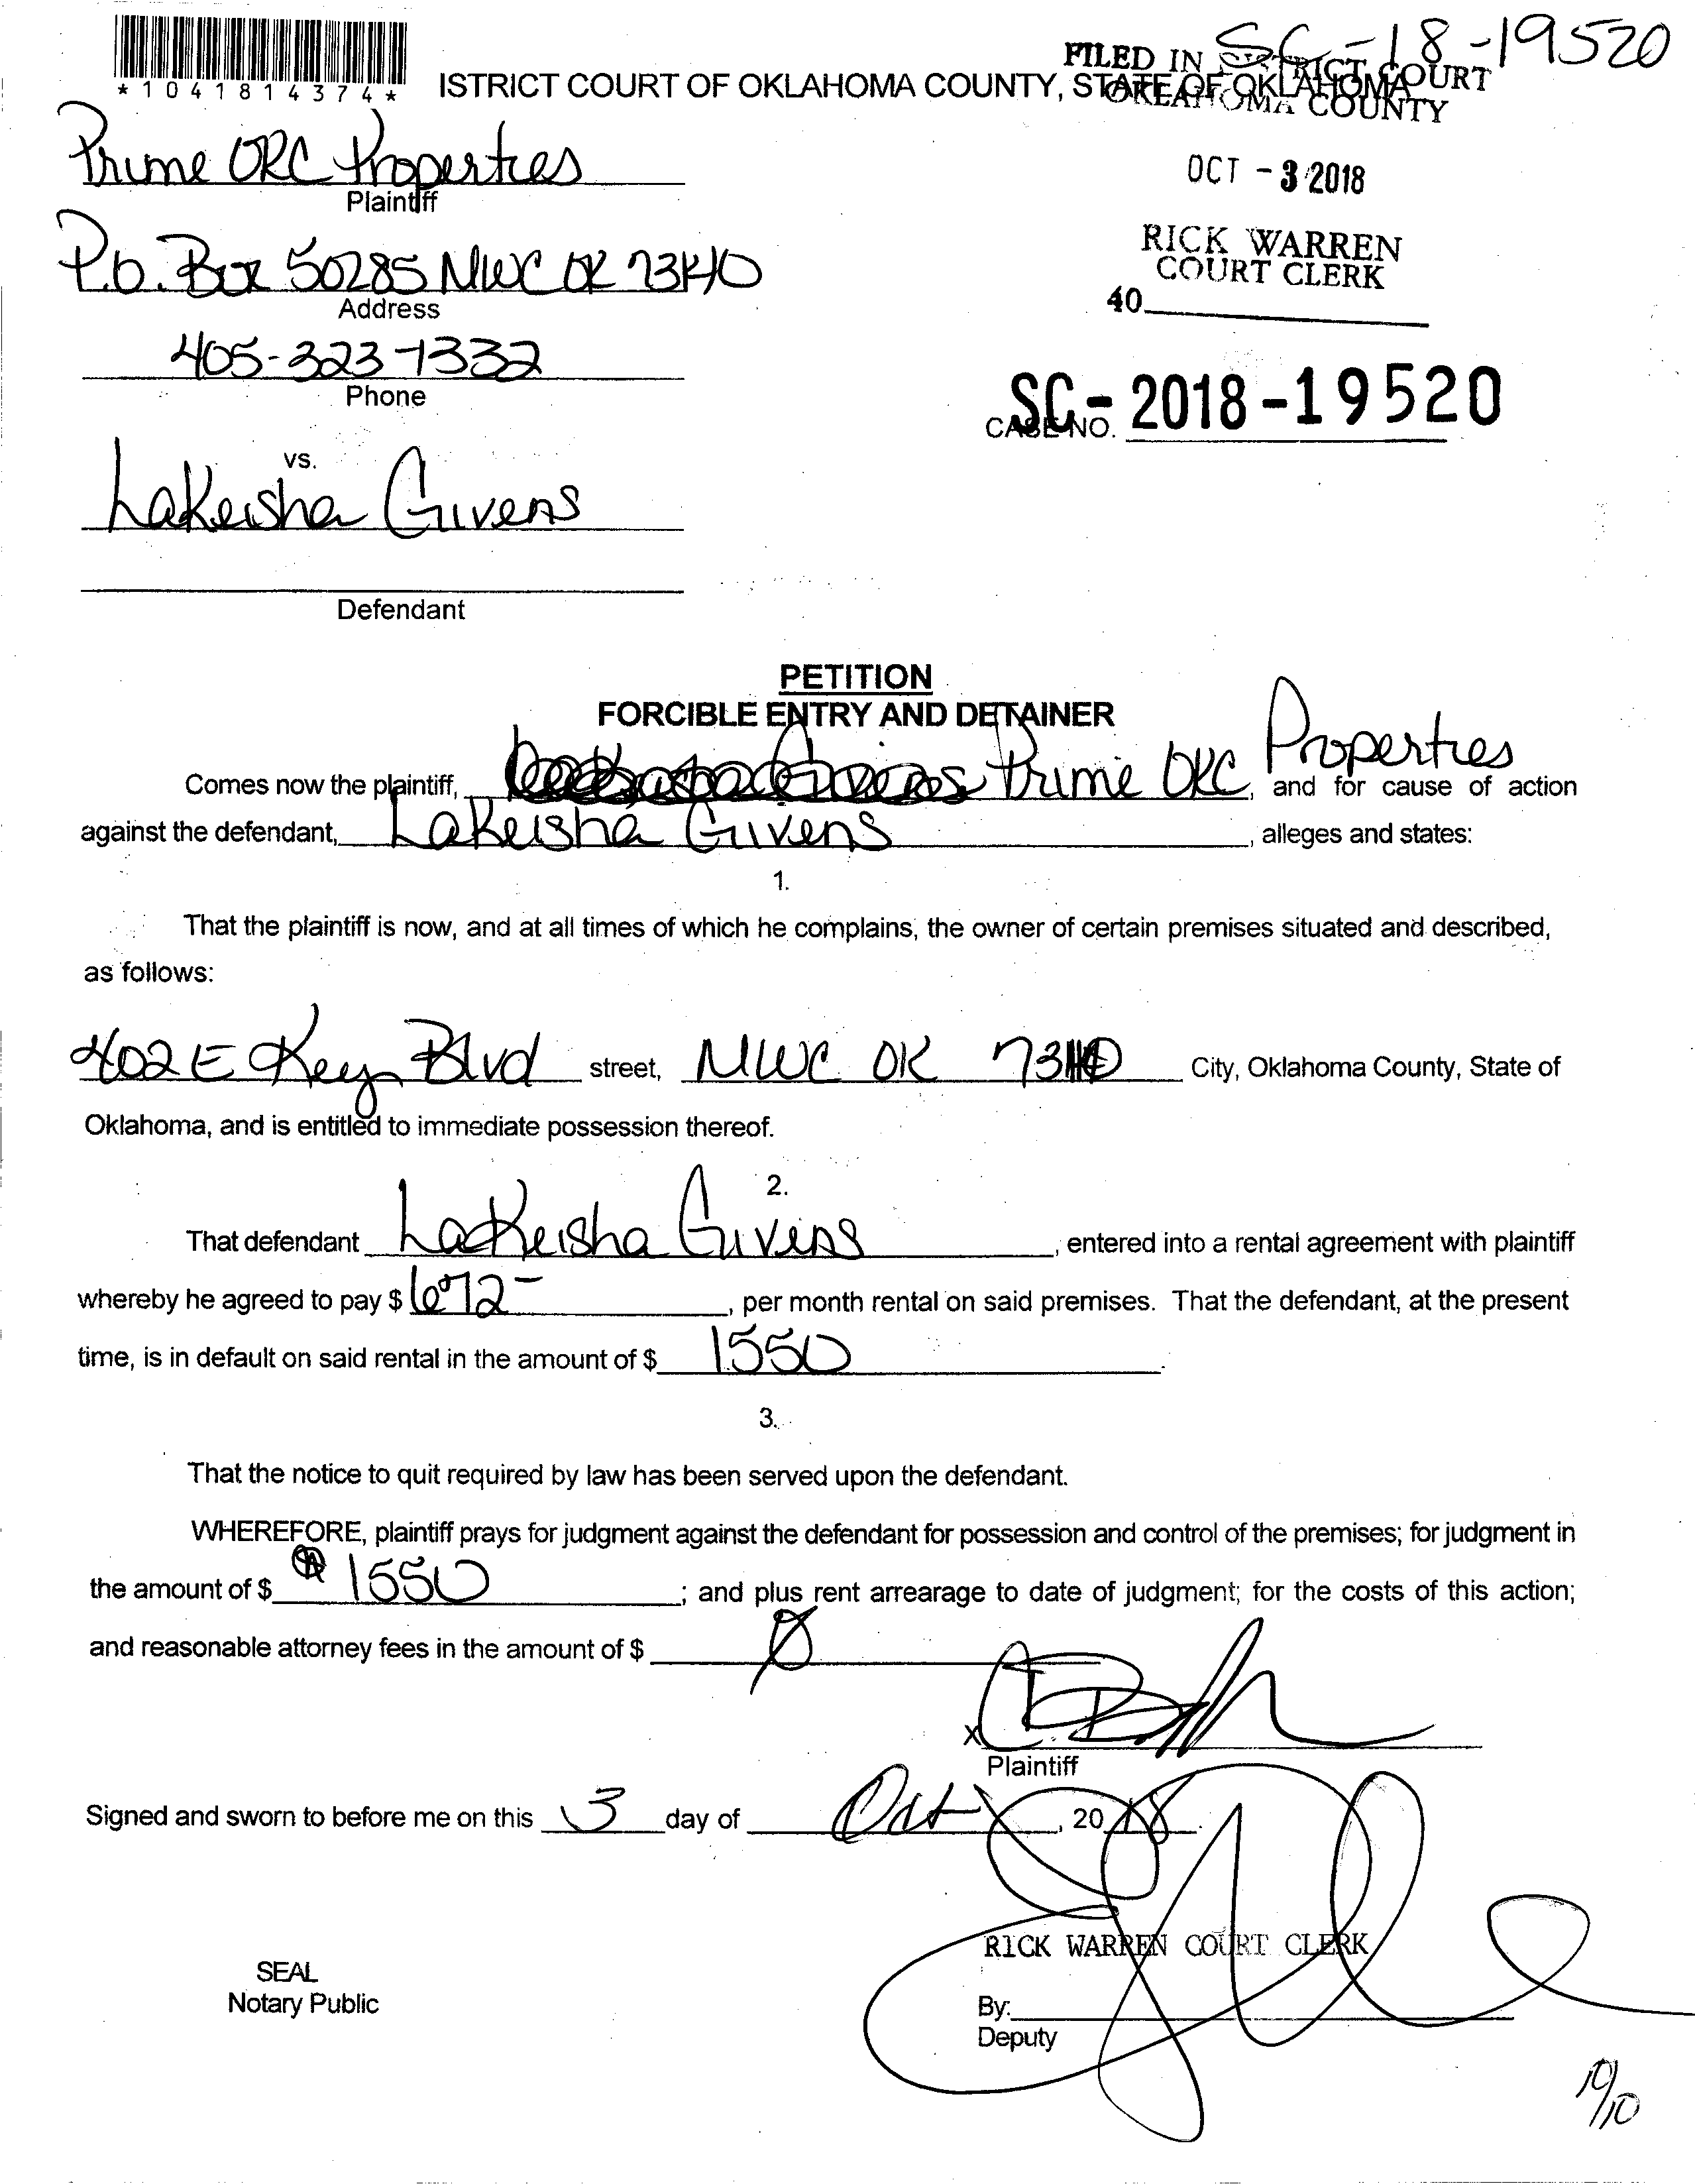 SC-18-19520
*1041814374*
ISTRICT COURT OF OKLAHOMA COUNTY, STATE OF OKLAHOMA
FILED IN DISTRICT COURT
OKLAHOMA COUNTY
OCT -3 2018
RICK WARREN
COURT CLERK
40
Prime OKC Properties
Plaintiff
P.O. Box 50285 MWC OK 73140
Address
405-323-1332
Phone
SC-2018-19520
CASE NO.
vs.
LaKeisha Givens
Defendant
PETITION
FORCIBLE ENTRY AND DETAINER
Comes now the plaintiff, Prime OKC Properties, and for cause of action
against the defendant, LaKeisha Givens, alleges and states:
1.
That the plaintiff is now, and at all times of which he complains, the owner of certain premises situated and described,
as follows:
402 E Key Blvd street, MWC OK 73110 City, Oklahoma County, State of
Oklahoma, and is entitled to immediate possession thereof.
2.
That defendant LaKeisha Givens, entered into a rental agreement with plaintiff
whereby he agreed to pay $ 672-, per month rental on said premises. That the defendant, at the present
time, is in default on said rental in the amount of $ 1550.
3.
That the notice to quit required by law has been served upon the defendant.
WHEREFORE, plaintiff prays for judgment against the defendant for possession and control of the premises; for judgment in
the amount of $ 1550; and plus rent arrearage to date of judgment; for the costs of this action;
and reasonable attorney fees in the amount of $ 0
X
Plaintiff
Signed and sworn to before me on this 3 day of Oct, 2018.
RICK WARREN COURT CLERK
SEAL
Notary Public
By:
Deputy
10/10